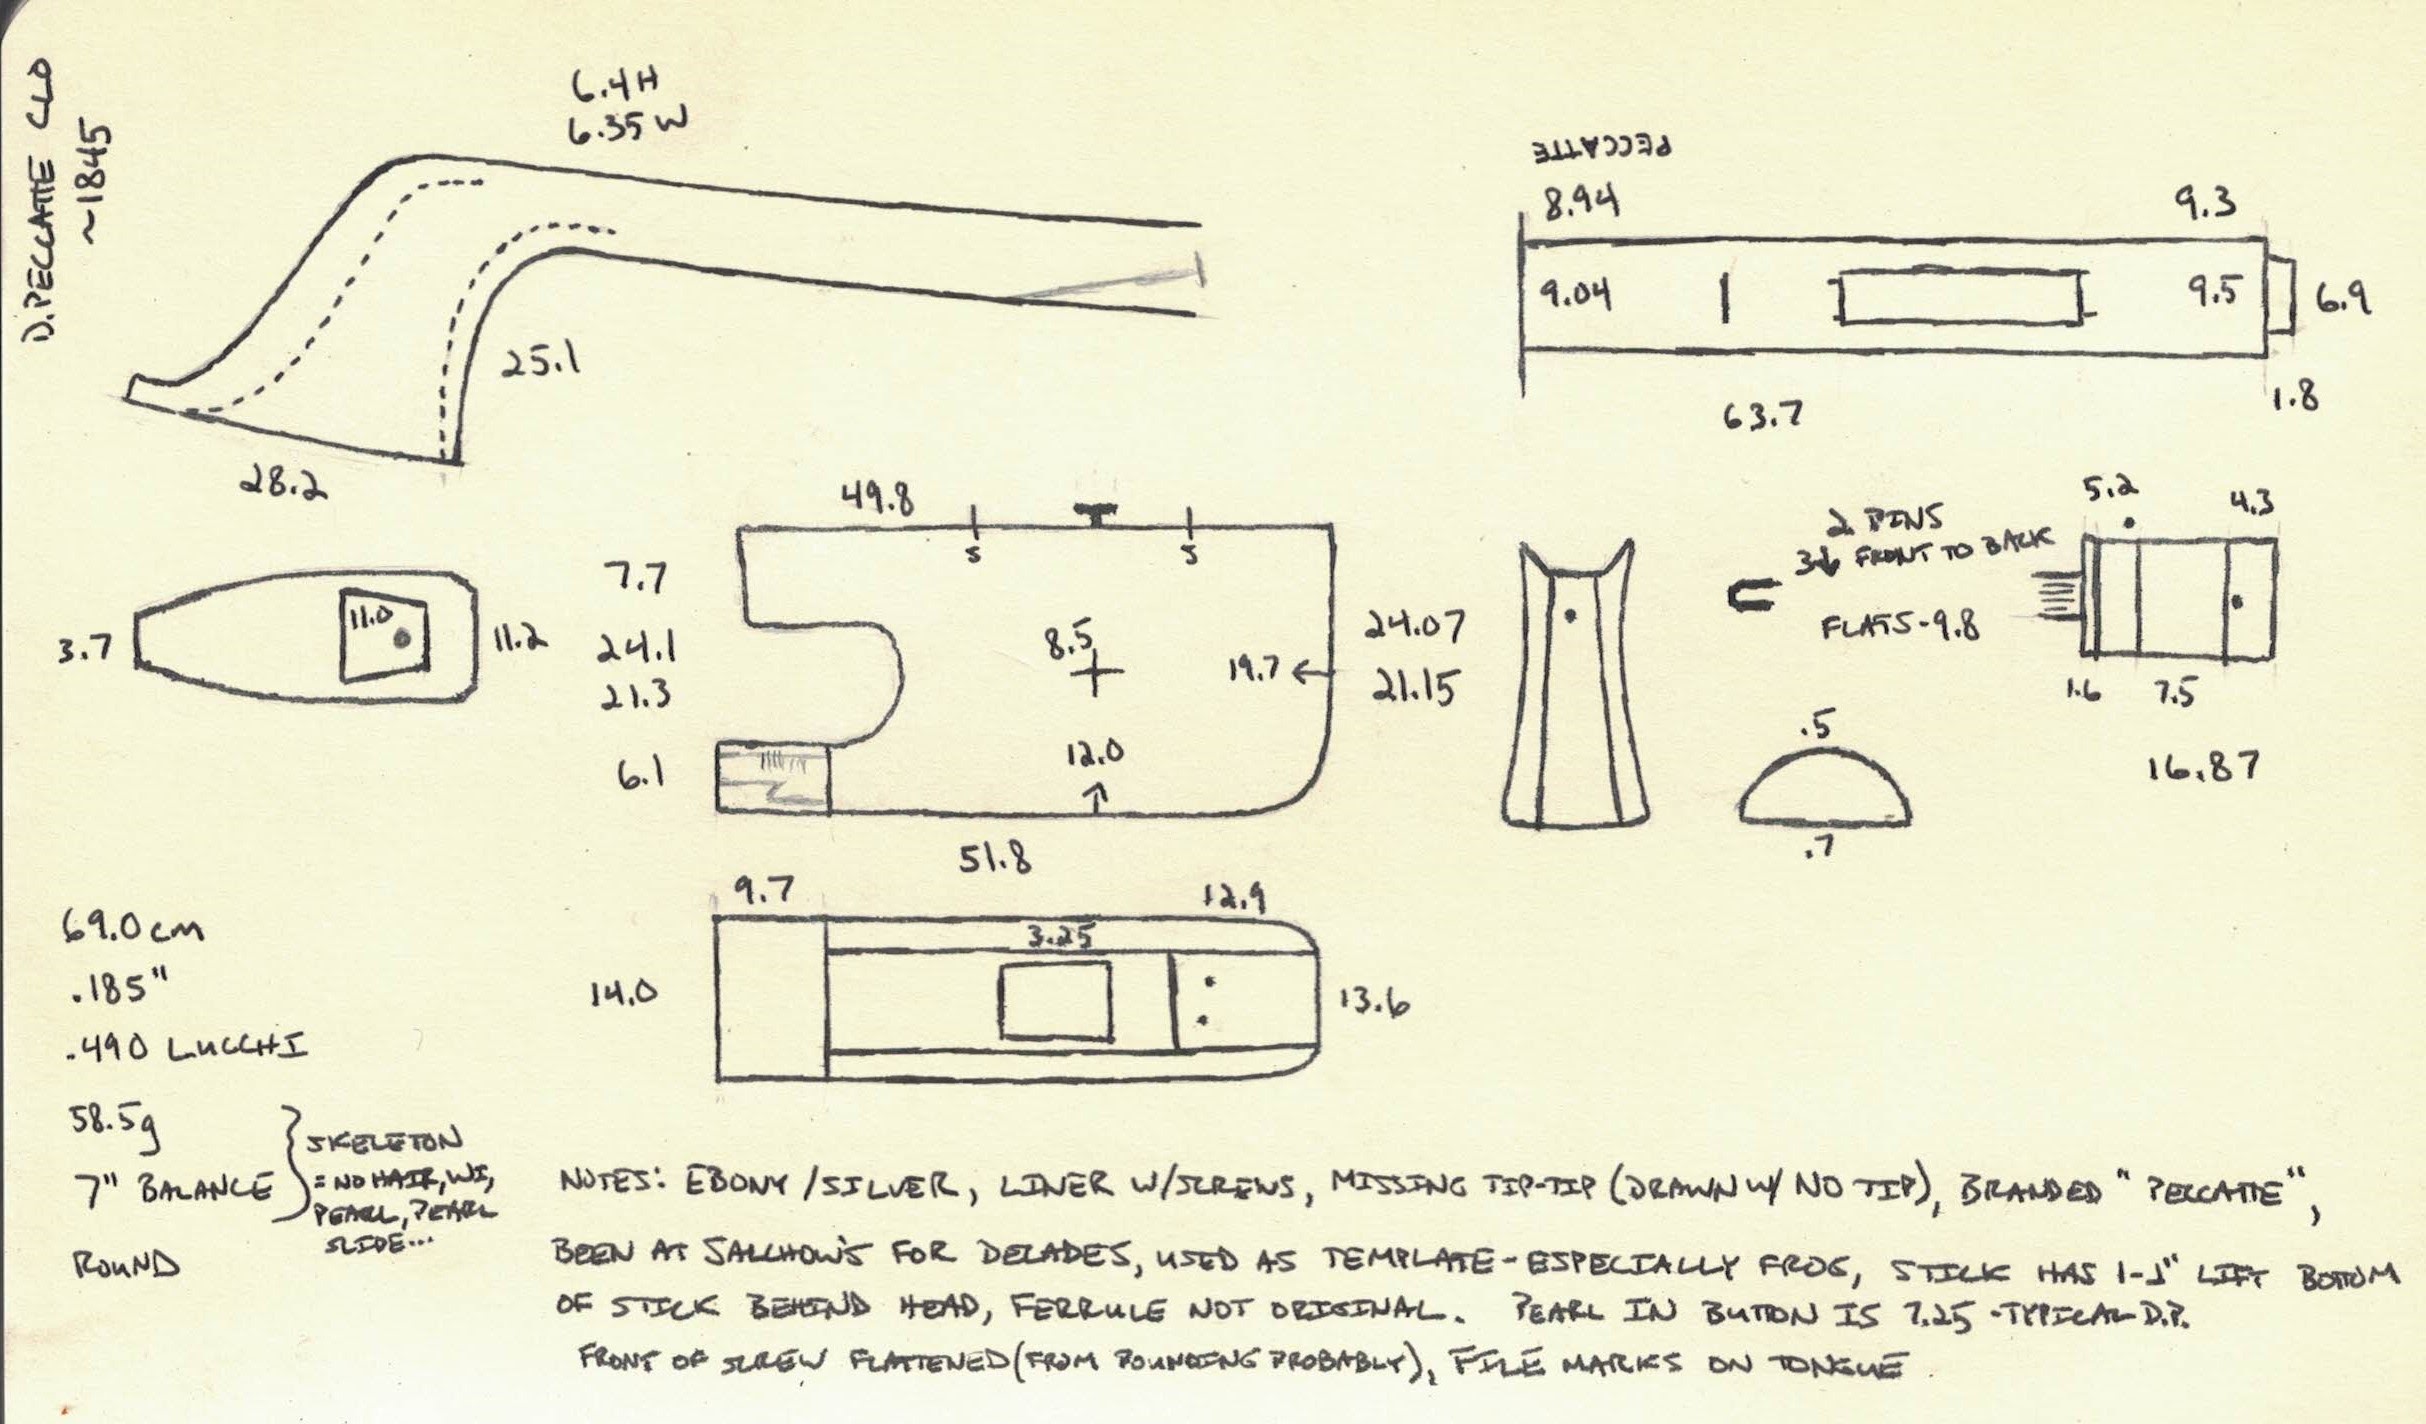 D. PECCATTE CLO
~1845
6.4 H
6.35 W
25.1
28.2
PECCATTE
8.94
9.3
9.04
9.5
6.9
1.8
63.7
3.7
11.0
11.2
49.8
5
5
7.7
24.1
21.3
6.1
8.5
19.7
12.0
24.07
21.15
51.8
2 PINS
FRONT TO BACK
FLATS-9.8
5.2
4.3
1.6
7.5
16.87
.5
.7
9.7
12.9
3.25
14.0
13.6
69.0 cm
.185"
.490 LUCCHI
58.5g
7" BALANCE
ROUND
SKELETON
= NO HAIR, WI,
PEARL, PEARL
SLIDE...
NOTES: EBONY/SILVER, LINER W/SCREWS, MISSING TIP-TIP (DRAWN W/ NO TIP), BRANDED "PECCATTE",
BEEN AT SALCHOW'S FOR DECADES, USED AS TEMPLATE-ESPECIALLY FROG, STICK HAS 1-1" LIFT BOTTOM
OF STICK BEHIND HEAD, FERRULE NOT ORIGINAL. PEARL IN BUTTON IS 7.25 -TYPICAL D.P.
FRONT OF SCREW FLATTENED (FROM POUNDING PROBABLY), FILE MARKS ON TONGUE